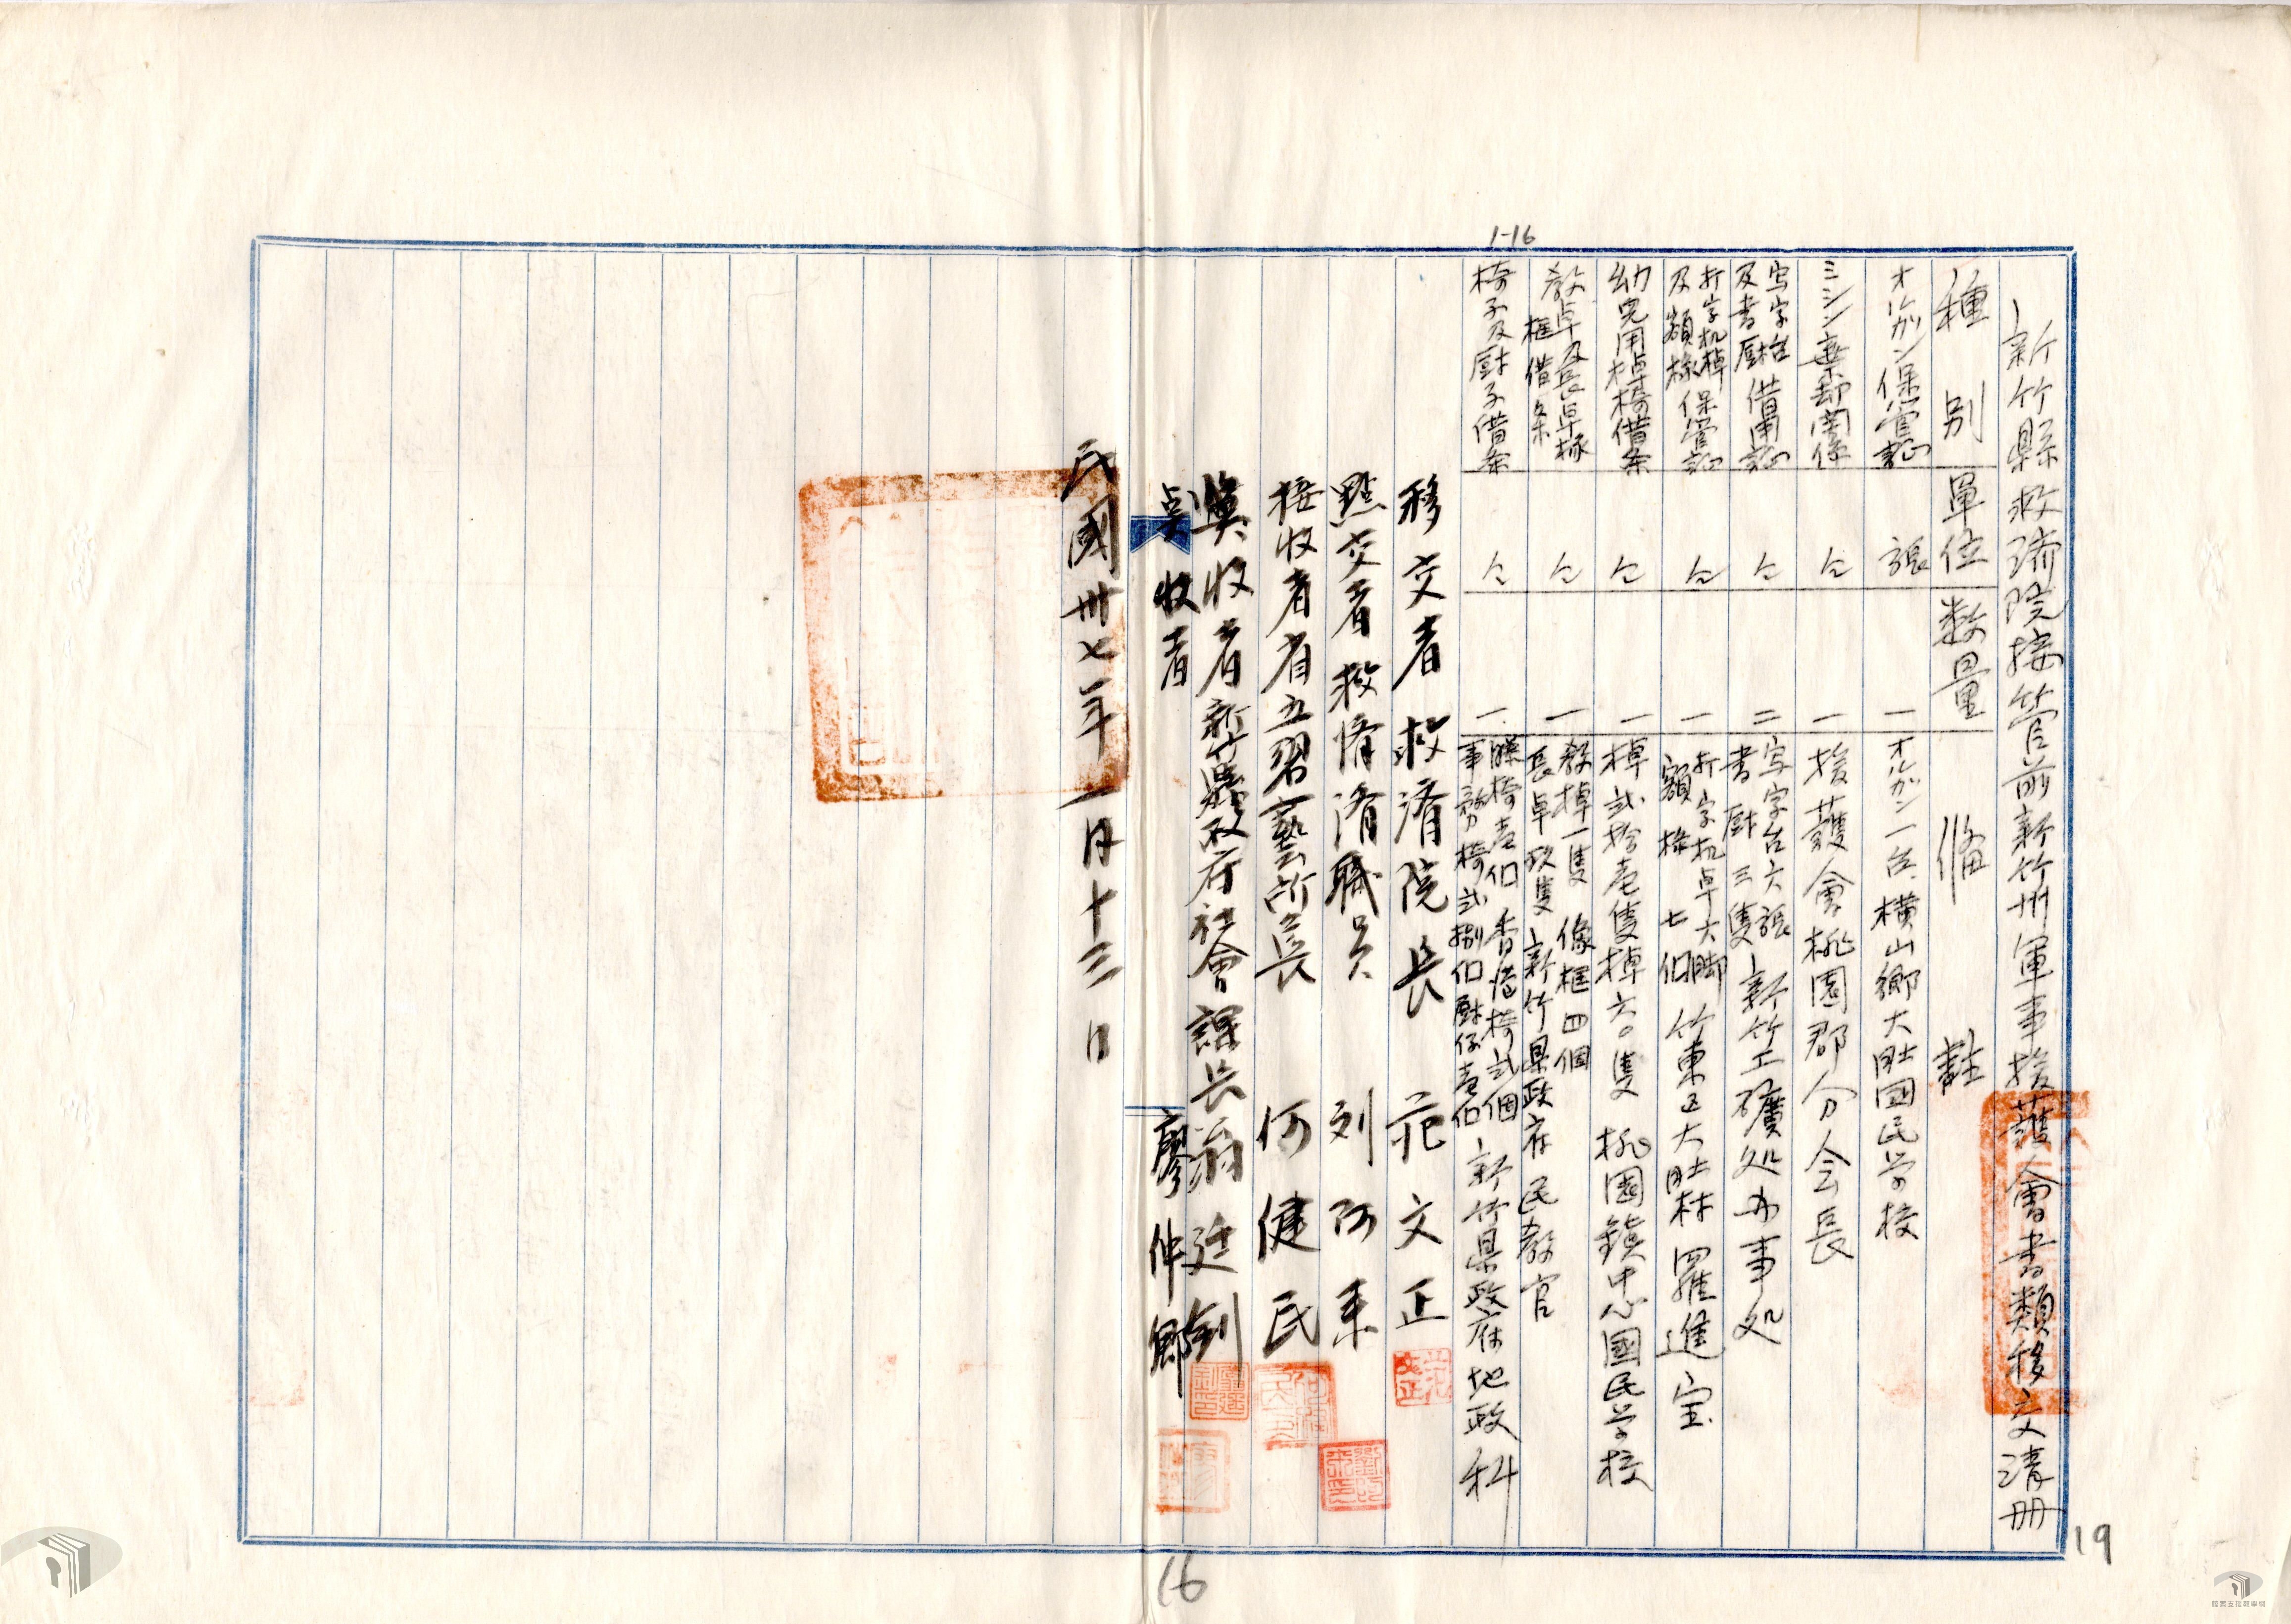 1-16
新竹縣救済院接管前新竹州軍事援護會書類移交清册
種別 單位 数量 俻註
オルガン保管証 張 一 オルガン一台 横山鄉大肚国民学校
ミシン棄却関係 仝 一 援護會桃園郡分会長
写字台及書厨借用証 仝 二 写字台六張 書厨三隻 新竹工礦処办事処
打字机棹及額椽保管証 仝 一 打字机卓大脚 額椽七個 竹東区大肚林 羅進宝
幼児用棹椅借条 仝 一 棹弐拾壱隻棹六〇隻 桃園鎮中心國民学校
教卓及長卓椽框借条 仝 一 教棹一隻 像框四個 長卓玖隻 新竹県政府民教官
椅子及厨子借条 仝 一 椅壱個 椅弐個 事務椅弐捌個厨仔壱個 新竹県政府地政科
移交者 救済院長 范文正
點交者 救済院職員 刘阿来
接收者省立習藝所長 何健民
監收者新竹縣政府社會課長翁廷釗
收者 廖仲鄉
民國卅七年一月十三日
16
19
國家支援教學網